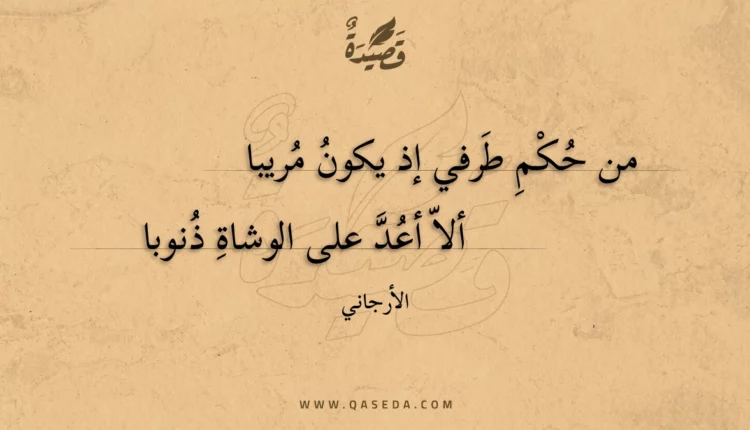 قَصِيْدَةٌ
من حُكْمِ طَرفي إذ يكونُ مُريبا
ألاّ أعُدَّ على الوشاةِ ذُنوبا
الأرجاني
WWW.QASEDA.COM